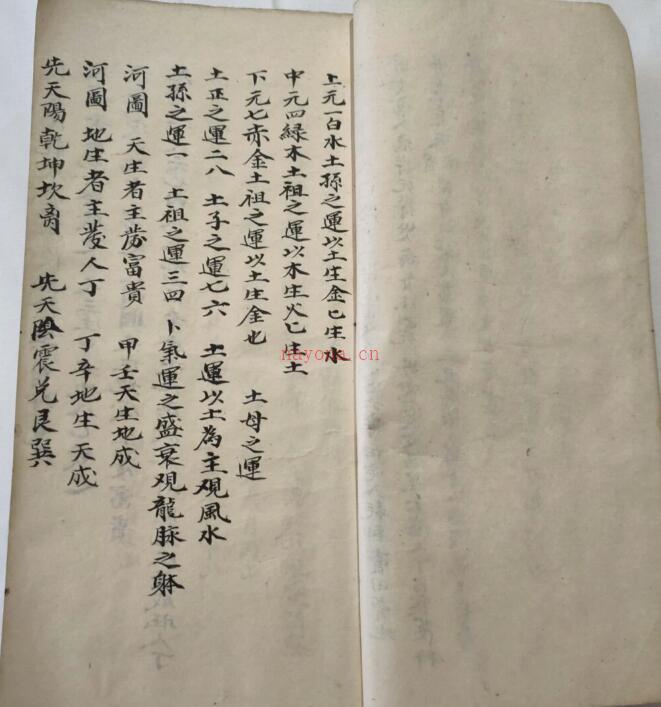 上元一白水土孫之運以土生金已生水
中元四緑木土祖之運以木生火已生土
下元七赤金土祖之運以土生金也　土母之運
土正之運二八　土子之運七六　土運以土為主观風水
土孫之運一　土祖之運三四　卜氣運之盛衰观龍脉之躰
河圖　天生者主發富貴　甲壬天生地成
河圖　地生者主發人丁　丁辛地生天成
先天陽乾坤坎离　先天陰震兌艮巽
nayona.cn